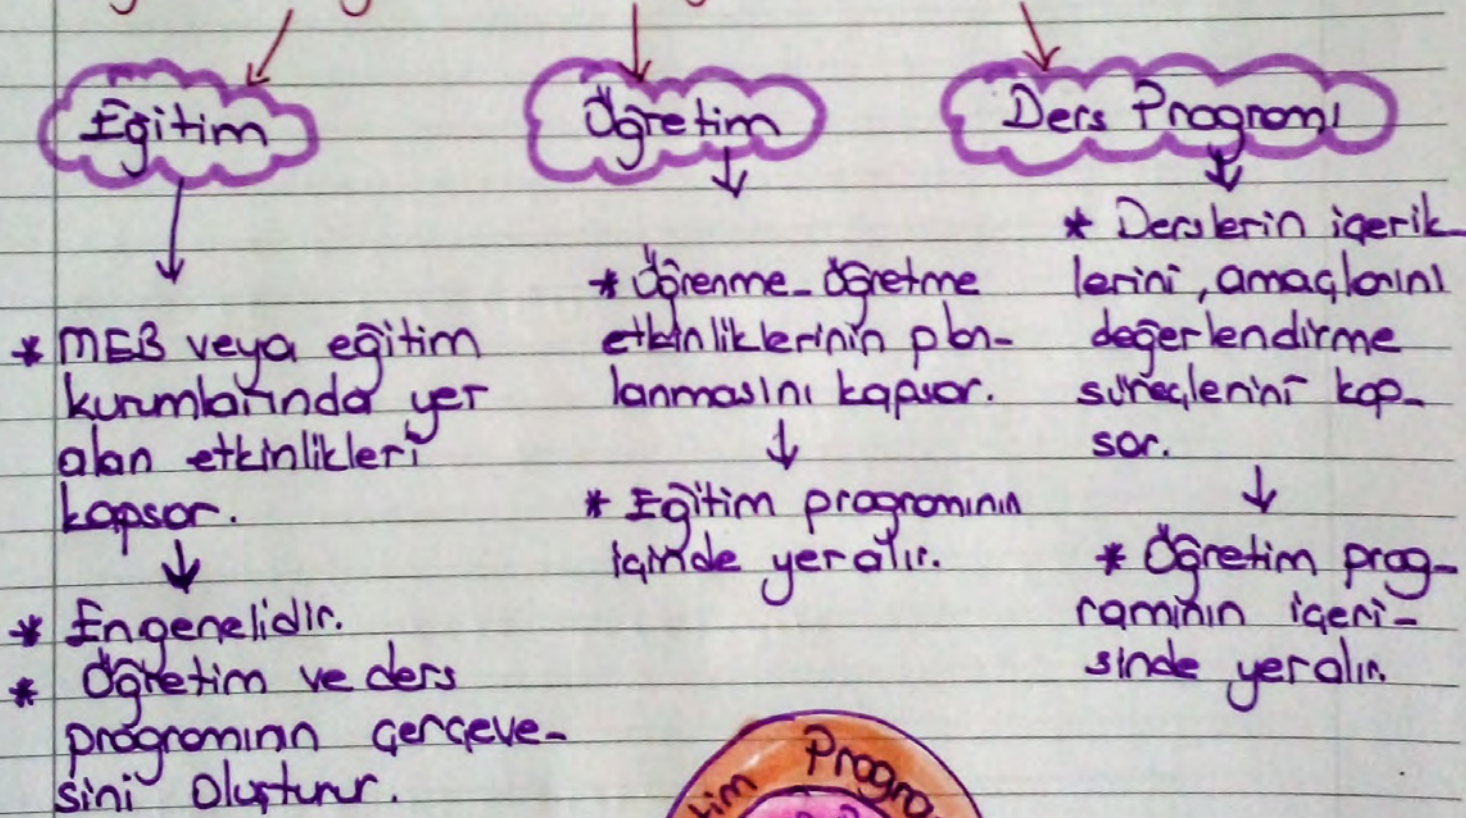 Eğitim
Öğretim
Ders Programı
* MEB veya eğitim
kurumlarında yer
alan etkinlikleri
kapsar.
* En genelidir.
* Öğretim ve ders
programının çerçeve-
sini oluşturur.
* Öğrenme-öğretme
etkinliklerinin plan-
lanmasını kapsar.
* Eğitim programının
içinde yer alır.
* Derslerin içerik-
lerini, amaçlarını
değerlendirme
süreçlerini kap-
sar.
* Öğretim prog-
ramının içeri-
sinde yer alır.